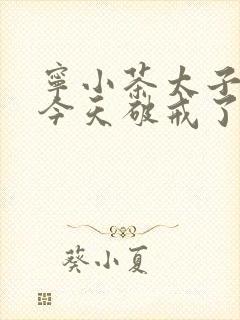 寧小茶太子
今天破戒了
葵小夏